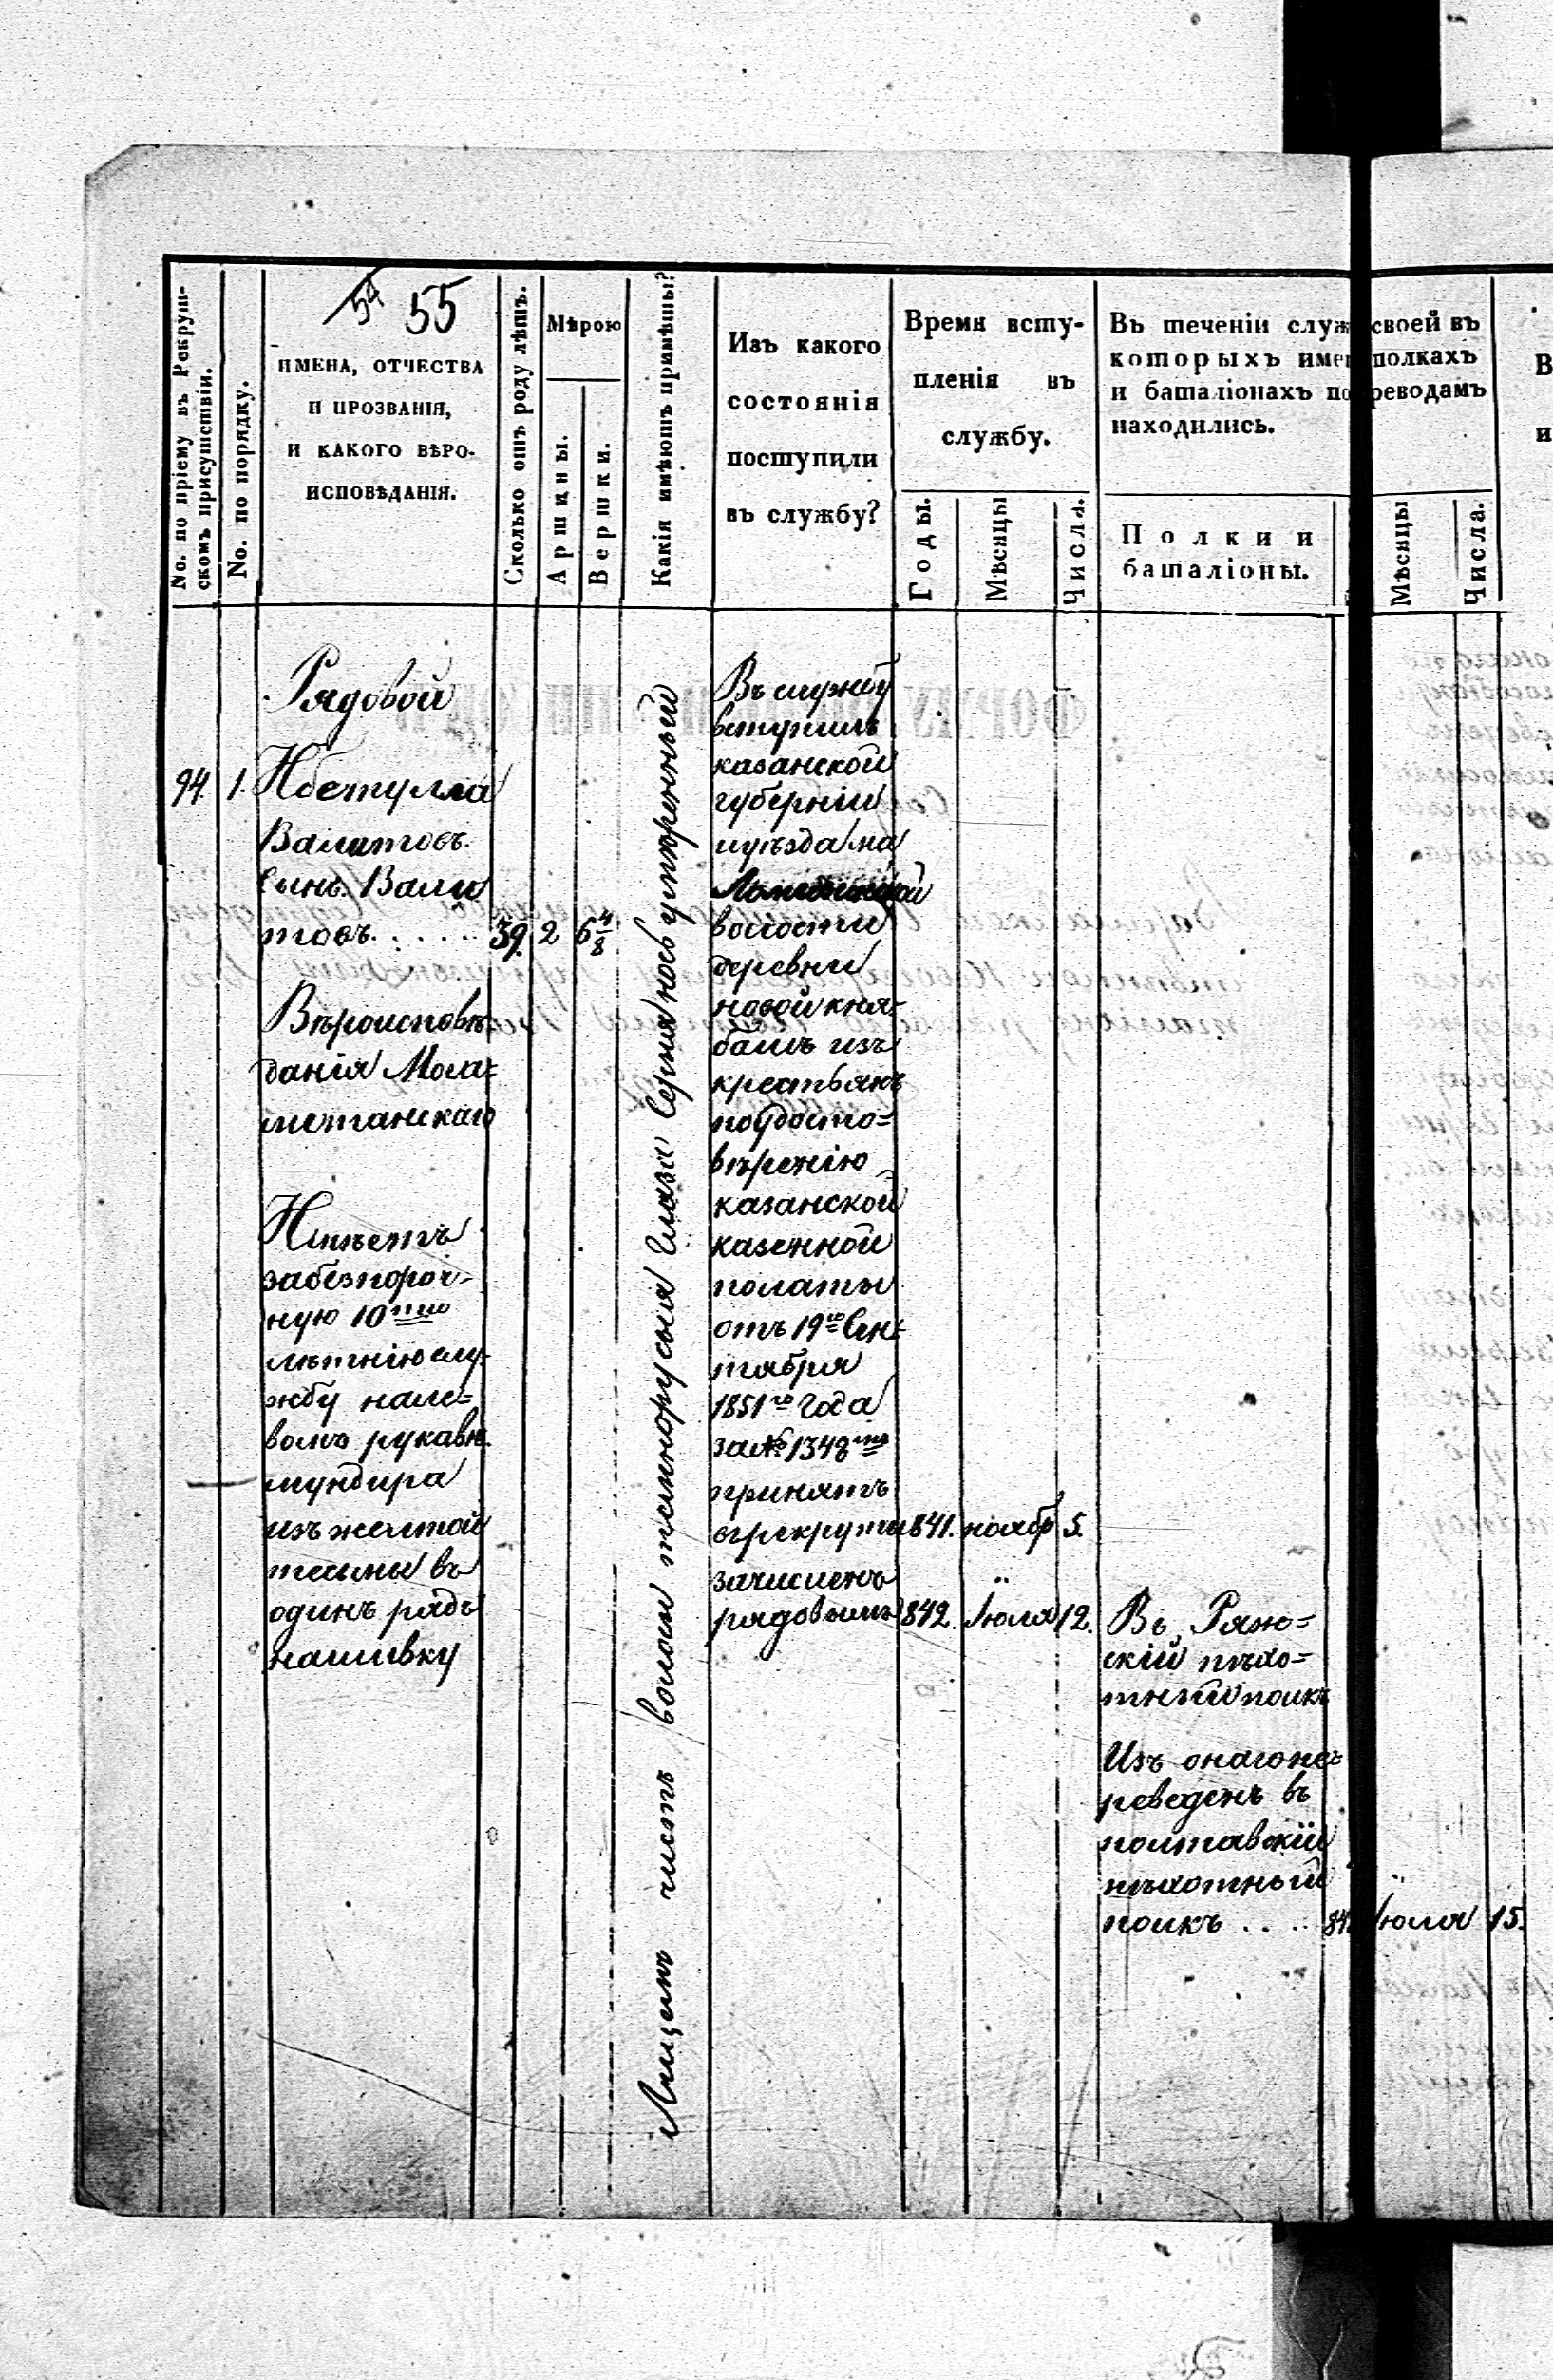 54 55
No. по пріему въ Рекрутскомъ присутствіи.
No. по порядку.
ИМЕНА, ОТЧЕСТВА
И ПРОЗВАНІЯ,
И КАКОГО ВѢРО-
ИСПОВѢДАНІЯ.
Сколько отъ роду лѣтъ.
Мѣрою
Аршины.
Вершки.
Какія имѣютъ примѣты?
Изъ какого
состоянія
поступили
въ службу?
Время всту-
пленія въ
службу.
Годы.
Мѣсяцы
Числа.
Въ теченіи служ своей въ
которыхъ имен полкахъ
и баталіонахъ по реводамъ
находились.
Полки и
баталіоны.
Мѣсяцы
Числа.
Рядовой
94. 1. Ибетулла
Валитовъ
сынъ Вали
товъ. . . . . . 39. 2 6 4/8
Вѣроисповѣ-
данія Мога=
метанскаго
Имѣетъ
забезпороч-
ную 10
лѣтнюю слу-
жбу нале=
вомъ рукавѣ
мундира
изъ желтой
тесьмы въ
одинъ рядъ
нашивку
Лицемъ чистъ волосы темнорусыя глаза серыя носъ умѣренный
Въ службу
вступилъ
казанской
губерніи
иуѣзда на
волости
деревни
новой кня-
башъ изъ
крестьянъ
поудосто=
вѣренію
казанской
казенной
полаты
отъ 19го Сен=
тября
1851го Года
за № 1348
принятъ
врекруты 841. ноябр 5.
зачисленъ
рядовымъ 842. Іюля 12.
Въ Ряж=
скій пѣхо=
тный полкъ
Изъ онаго пе=
реведенъ въ
полтавскій
пѣхотный
полкъ . . . . 84 Іюля 15.